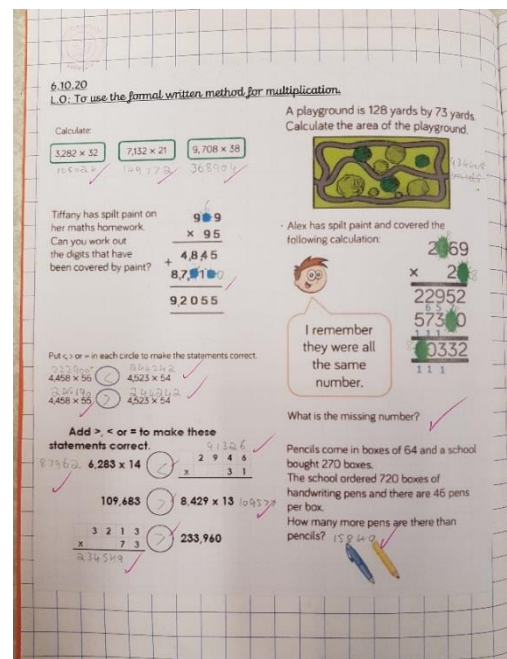 6.10.20
L.O: To use the formal written method for multiplication.
Calculate:
3,282 × 32
7,132 × 21
9,708 × 38
368904
Tiffany has spilt paint on
her maths homework.
Can you work out
the digits that have
been covered by paint?
6
9 9
× 95
4,845
+ 8,7 1
92055
Put <,> or = in each circle to make the statements correct.
4,458 × 56 < 4,523 × 54
4,458 × 55 > 4,523 × 54
Add >, < or = to make these
statements correct.
91326
87962 6,283 × 14 <
2 9 4 6
× 3 1
109,683 > 8,429 × 13 109577
3 2 1 3
× 7 3
> 233,960
234549
A playground is 128 yards by 73 yards.
Calculate the area of the playground.
Alex has spilt paint and covered the
following calculation:
2 69
× 2
22952
573 0
0332
1 1 1
I remember
they were all
the same
number.
What is the missing number?
Pencils come in boxes of 64 and a school
bought 270 boxes.
The school ordered 720 boxes of
handwriting pens and there are 46 pens
per box.
How many more pens are there than
pencils? 15840